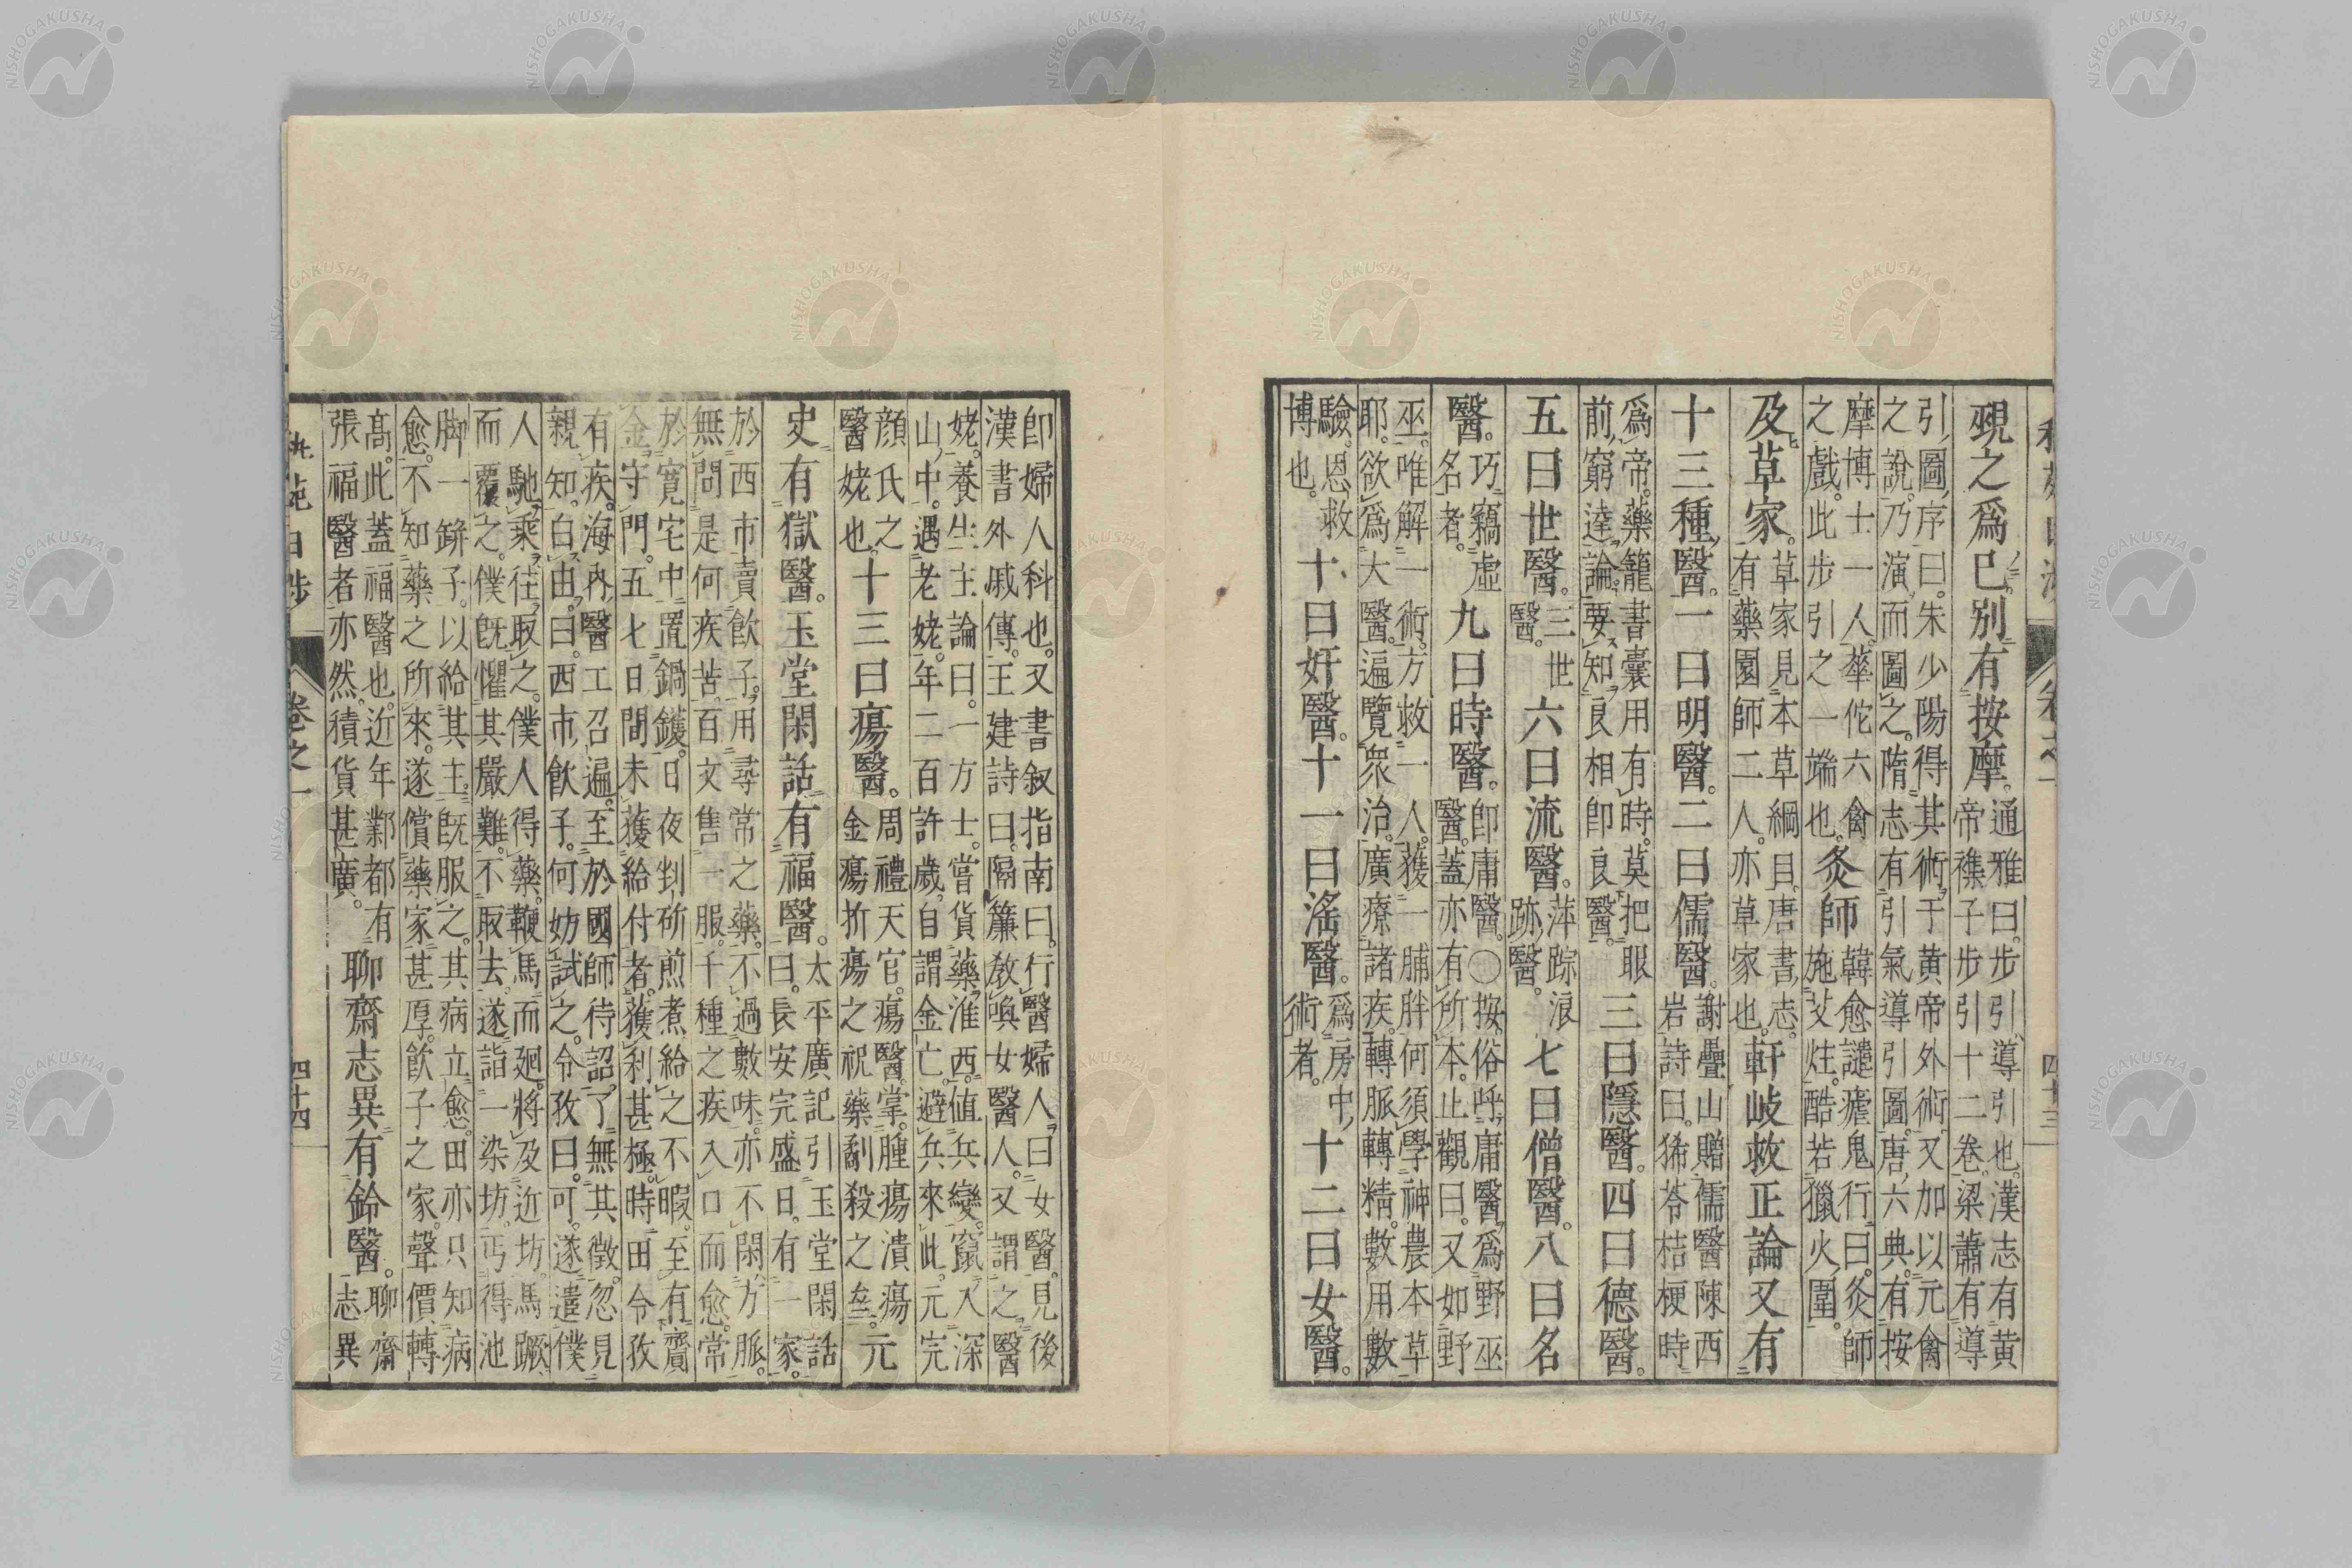 覡之爲巳別有按摩。通雅曰。步引、導引也。漢志有黃
帝襍子步引十二卷。梁蕭有導
引圖序曰。朱少陽得其術于黃帝外術。又加以元禽
之說。乃演而圖之。隋志有引氣導引圖。唐六典。有按
摩博士一人。華佗六禽
之戲。此步引之一端也。灸師韓愈譴瘧鬼行曰。灸師
施艾炷。酷若獵火圍。
及草家。草家見本草綱目。唐書志。
有藥園師二人。亦草家也。軒岐救正論又有
十三種醫。一曰明醫。二曰儒醫。謝疊山贈儒醫陳西
岩詩曰。豨苓桔梗時
爲帝。藥籠書囊用有時。莫把眼
前窮達論。要知良相卽良醫。三曰隱醫。四曰德醫。
五曰世醫。三世
醫。六曰流醫。萍踪浪
跡醫。七曰僧醫。八曰名
醫。巧竊虛
名者。九曰時醫。卽庸醫。○按。俗呼庸醫爲野巫
醫。蓋亦有所本。止觀曰。又如野
巫。唯解一術。方救一人。獲一脯胖。何須學神農本草
耶。欲爲大醫。遍覽衆治。廣療諸疾。轉脈轉精。數用數
驗。恩救
博也。十曰奸醫。十一曰滛醫。爲房中
術者。十二曰女醫。
四十三
卽婦人科也。又書叙指南曰。行醫婦人曰女醫。見後
漢書外戚傳。王建詩曰。隔簾敎喚女醫人。又謂之醫
姥。養生主論曰。一方士。嘗貨藥淮西。値兵變。竄入深
山中。遇老姥。年二百許歲。自謂金亡。避兵來此。元完
顏氏之
醫姥也。十三曰瘍醫。周禮天官。瘍醫。掌腫瘍潰瘍
金瘍折瘍之祝藥劀殺之齊。元
史有獄醫。玉堂閑話有福醫。太平廣記引玉堂閑話
曰。長安完盛日。有一家。
於西市賣飮子。用尋常之藥。不過數味。亦不閑方脈。
無問是何疾苦。百文售一服。千種之疾入口而愈。常
於寬宅中置鍋鑊。日夜剉斫煎煮。給之不暇。至有齎
金守門。五七日間未獲給付者。獲利甚極。時田令孜
有疾。海內醫工召遍。至於國師待詔。了無其徵。忽見
親知。白田曰。西市飮子。何妨試之。令孜曰。可。遂遣僕
人馳乘往取之。僕人得藥。鞭馬而廻。將及近坊。馬蹶
而覆之。僕旣懼其嚴難。不取去。遂詣一染坊。丐得池
脚一缾子。以給其主。旣服之。其病立愈。田亦只知病
愈。不知藥之所來。遂償藥家甚厚。飮子之家。聲價轉
高。此蓋福醫也。近年鄴都有
張福醫者亦然。積貨甚廣。聊齋志異有鈴醫。聊齋
志異
秇苑日涉
卷之一
四十四